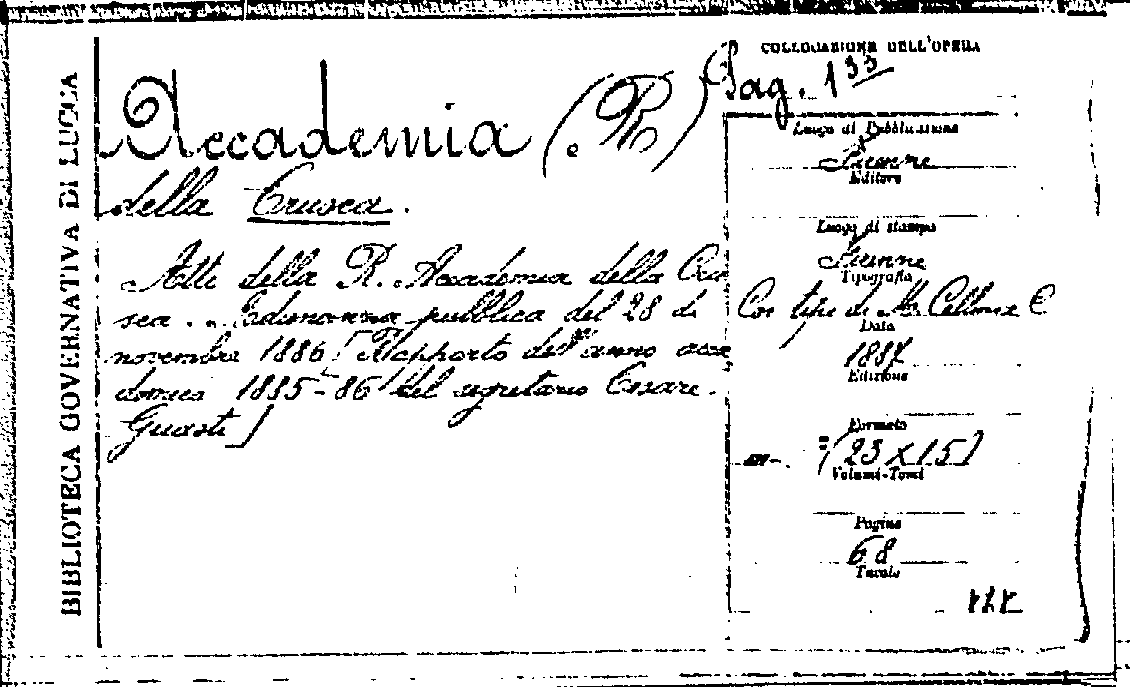 BIBLIOTECA GOVERNATIVA DI LUCCA
COLLOCAZIONE DELL'OPERA
Pag. 133
Accademia (R.)
della Crusca.
Atti della R. Accademia della Cru
sca. Adunanza pubblica del 28 di
novembre 1886 [Rapporto dell'anno acca
demico 1885-86 del segretario Cesare
Guasti]
Luogo di Pubblicazione
Firenze
Editore
Luogo di stampa
Firenze
Tipografia
Coi tipi di M. Cellini e C
Data
1887
Edizione
Formato
in- (23 x 15)
Volumi-Tomi
Pagine
68
Tavole